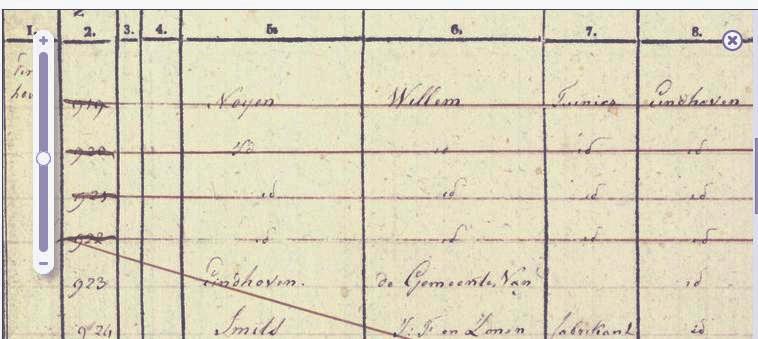 1. 2. 3. 4. 5. 6. 7. 8.
919 Noyen Willem Tuinier Eindhoven
920 id id id id
921 id id id id
922 id id id id
923 Eindhoven. de Gemeente Van id
924 Smits J: F: en Zonen fabrikant id